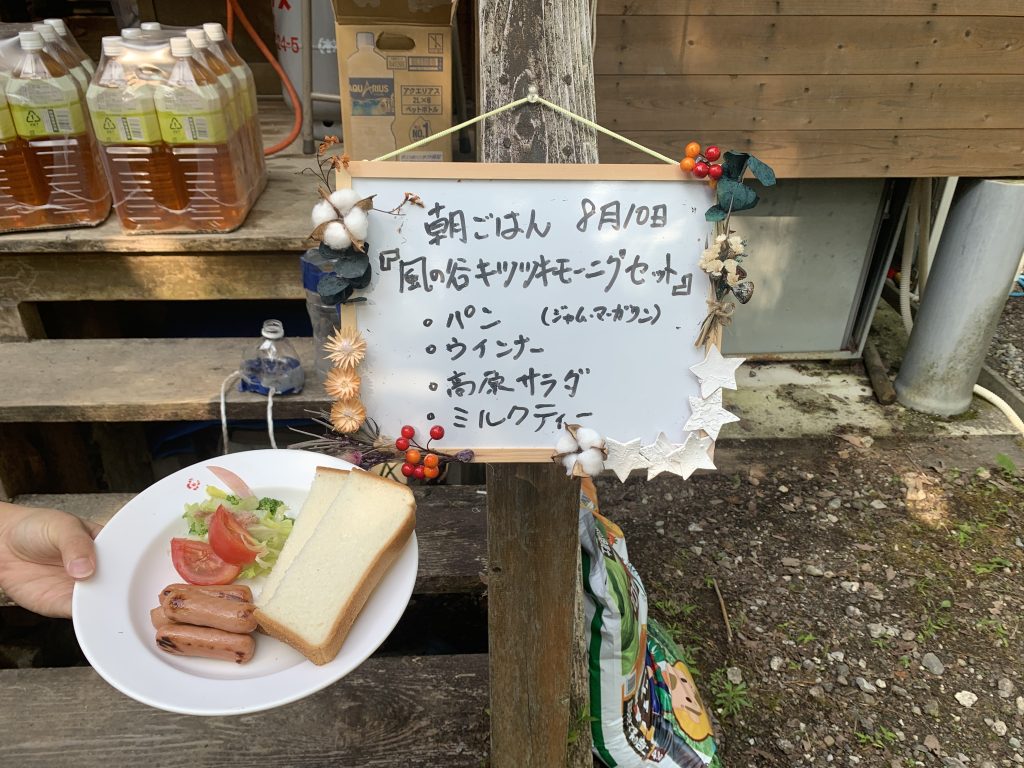 朝ごはん 8月10日
『風の谷キツツキモーニングセット』
・パン (ジャム・マーガリン)
・ウインナー
・高原サラダ
・ミルクティー
AQUARIUS
アクエリアス
2L×6
ペットボトル
NO.1
24-5